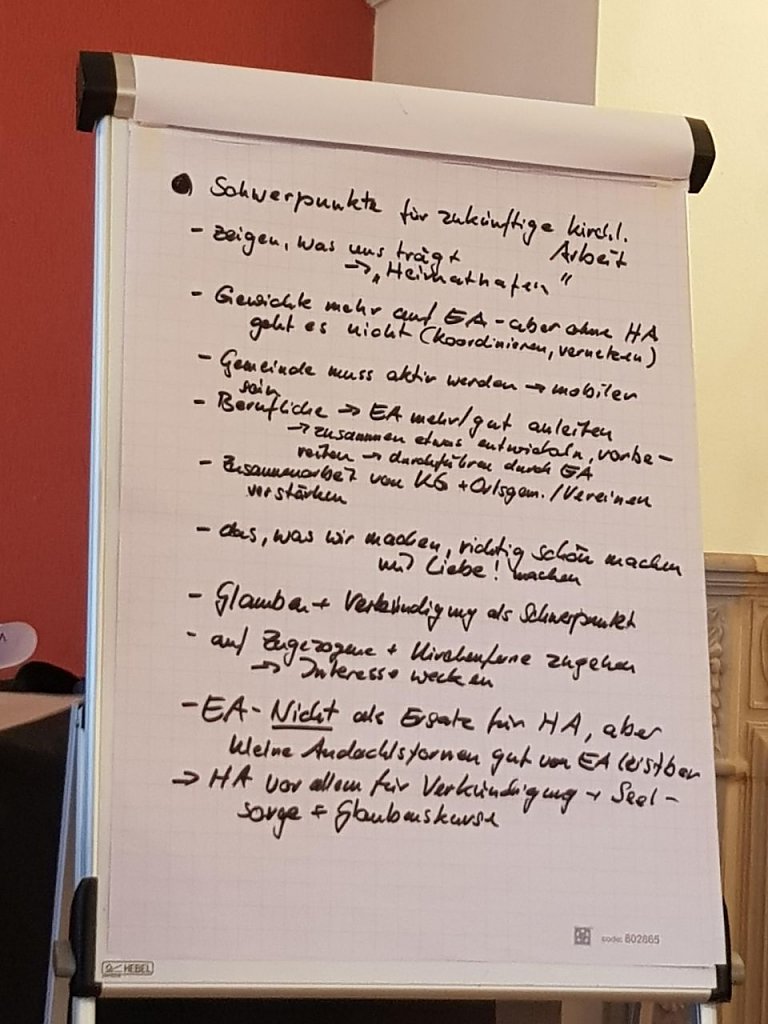 ● Schwerpunkte für zukünftige kirchl. Arbeit
- zeigen, was uns trägt
→ „Heimathafen"
- Gewichte mehr auf EA - aber ohne HA
geht es nicht (koordinieren, vernetzen)
- Gemeinde muss aktiv werden → mobiler
sein
- Berufliche → EA mehr/gut anleiten
→ zusammen etwas entwickeln, vorbe-
reiten → durchführen durch EA
- Zusammenarbeit von KG + Ortsgem./Vereinen
verstärken
- das, was wir machen, richtig schön machen
mit Liebe! machen
- Glauben + Verkündigung als Schwerpunkt
- auf Zugezogene + Kirchenferne zugehen
→ Interesse wecken
- EA - Nicht als Ersatz für HA, aber
kleine Andachtsformen gut von EA leistbar
→ HA vor allem für Verkündigung + Seel-
sorge + Glaubenskurse
code: 802865
HEBEL